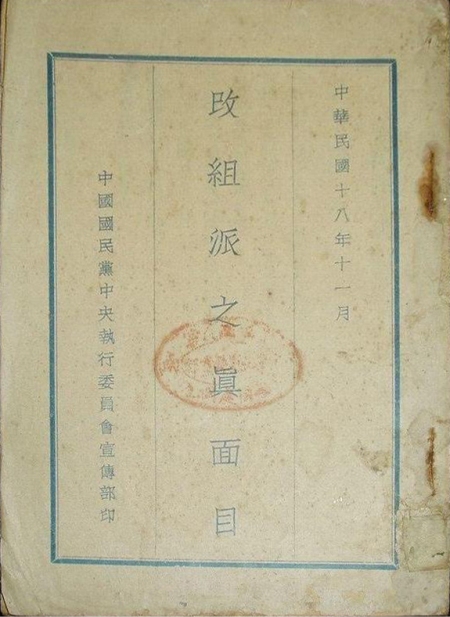 中華民國十八年十一月
改組派之眞面目
中國國民黨中央執行委員會宣傳部印